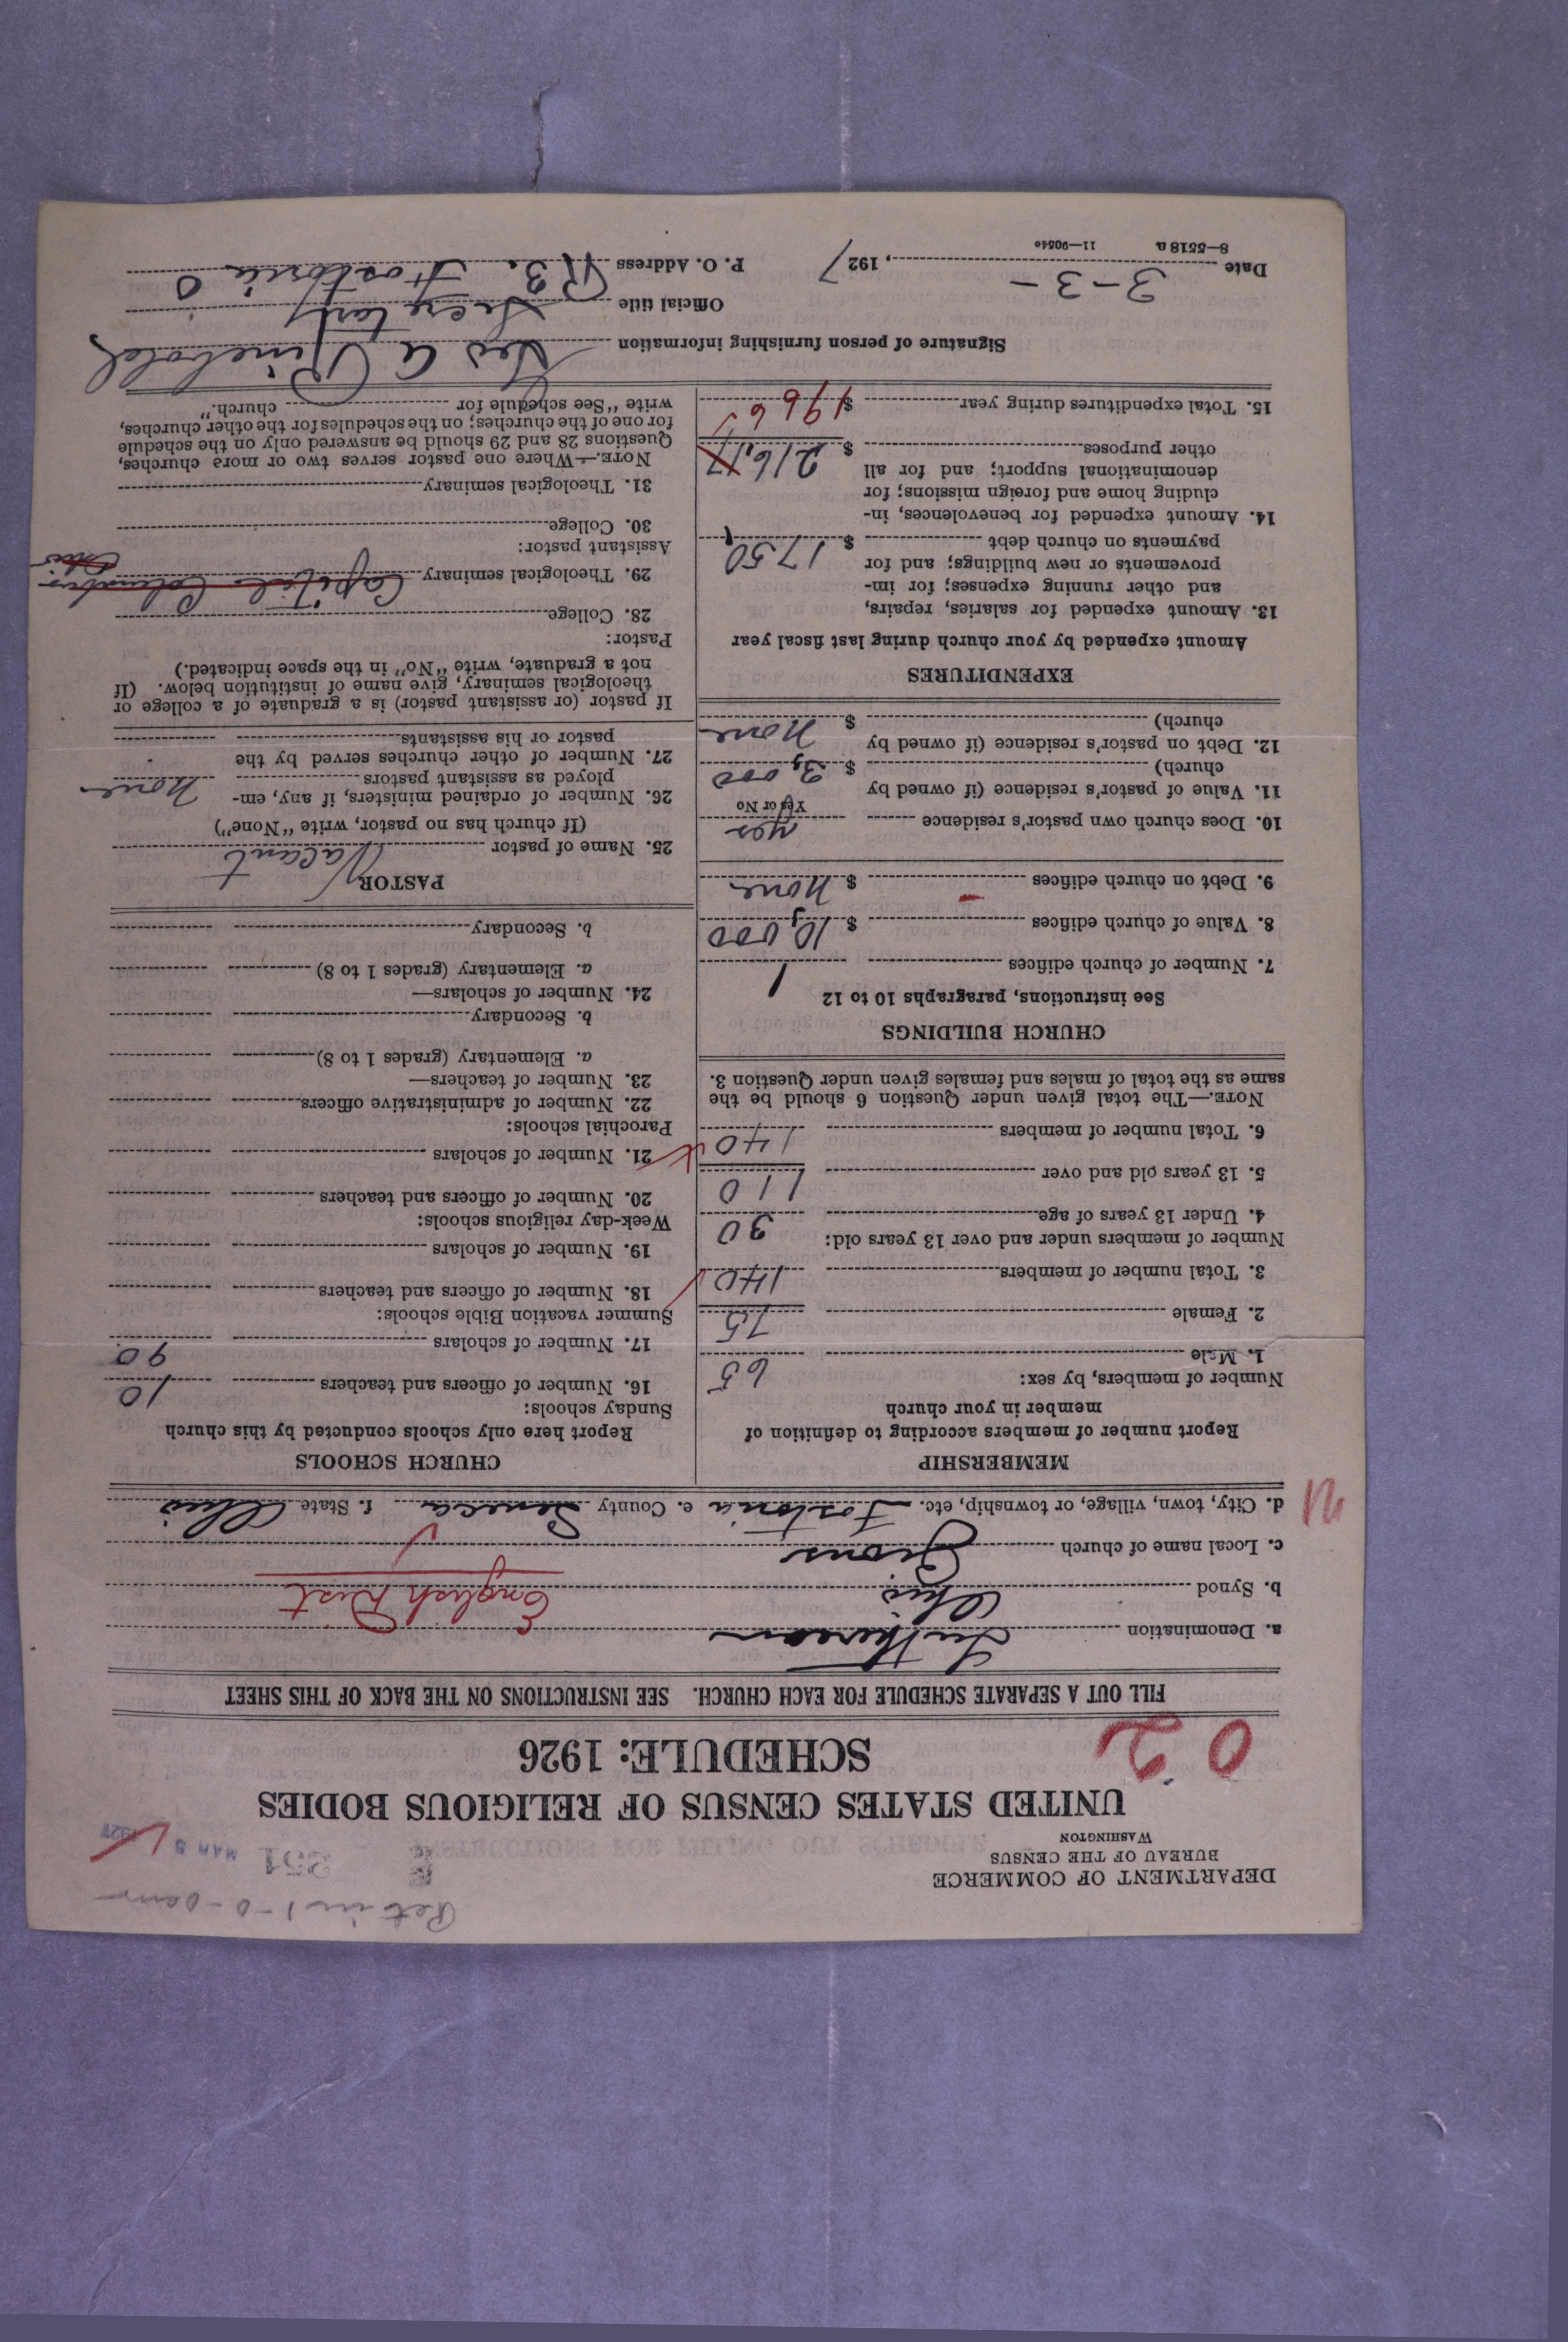 Ret in 1-0-
DEPARTMENT OF COMMERCE
BUREAU OF THE CENSUS
WASHINGTON
351
MAR 5 1927
UNITED STATES CENSUS OF RELIGIOUS BODIES
SCHEDULE: 1926
02
FILL OUT A SEPARATE SCHEDULE FOR EACH CHURCH. SEE INSTRUCTIONS ON THE BACK OF THIS SHEET
a. Denomination Lutheran
b. Synod Ohio English Dist
c. Local name of church Zions
d. City, town, village, or township, etc. Fostoria e. County Seneca f. State Ohio
MEMBERSHIP
Report number of members according to definition of
member in your church
Number of members, by sex:
1. Male 65
2. Female 75
3. Total number of members 140
Number of members under and over 13 years old:
4. Under 13 years of age 30
5. 13 years old and over 110
6. Total number of members 140
NOTE.—The total given under Question 6 should be the
same as the total of males and females given under Question 3.
CHURCH BUILDINGS
See instructions, paragraphs 10 to 12
7. Number of church edifices 1
8. Value of church edifices $ 10,000
9. Debt on church edifices $ None
10. Does church own pastor's residence yes
Yes or No
11. Value of pastor's residence (if owned by
church) $ 3,000
12. Debt on pastor's residence (if owned by
church) $ None
EXPENDITURES
Amount expended by your church during last fiscal year
13. Amount expended for salaries, repairs,
and other running expenses; for im-
provements or new buildings; and for
payments on church debt $ 1750
14. Amount expended for benevolences, in-
cluding home and foreign missions; for
denominational support; and for all
other purposes $ 216.17
15. Total expenditures during year $ 1966
CHURCH SCHOOLS
Report here only schools conducted by this church
Sunday schools:
16. Number of officers and teachers 10
17. Number of scholars 90
Summer vacation Bible schools:
18. Number of officers and teachers
19. Number of scholars
Week-day religious schools:
20. Number of officers and teachers
21. Number of scholars
Parochial schools:
22. Number of administrative officers
23. Number of teachers—
a. Elementary (grades 1 to 8)
b. Secondary
24. Number of scholars—
a. Elementary (grades 1 to 8)
b. Secondary
PASTOR
25. Name of pastor Vacant
(If church has no pastor, write "None")
26. Number of ordained ministers, if any, em-
ployed as assistant pastors None
27. Number of other churches served by the
pastor or his assistants
If pastor (or assistant pastor) is a graduate of a college or
theological seminary, give name of institution below. (If
not a graduate, write "No" in the space indicated.)
Pastor:
28. College
29. Theological seminary Capital Columbus Ohio
Assistant pastor:
30. College
31. Theological seminary
NOTE.—Where one pastor serves two or more churches,
Questions 28 and 29 should be answered only on the schedule
for one of the churches; on the schedules for the other churches,
write "See schedule for church."
Signature of person furnishing information Geo A Rinebold
Official title Secretary
Date 3-3-, 1927 P. O. Address R3. Fostoria O
8—5518 a 11—9054